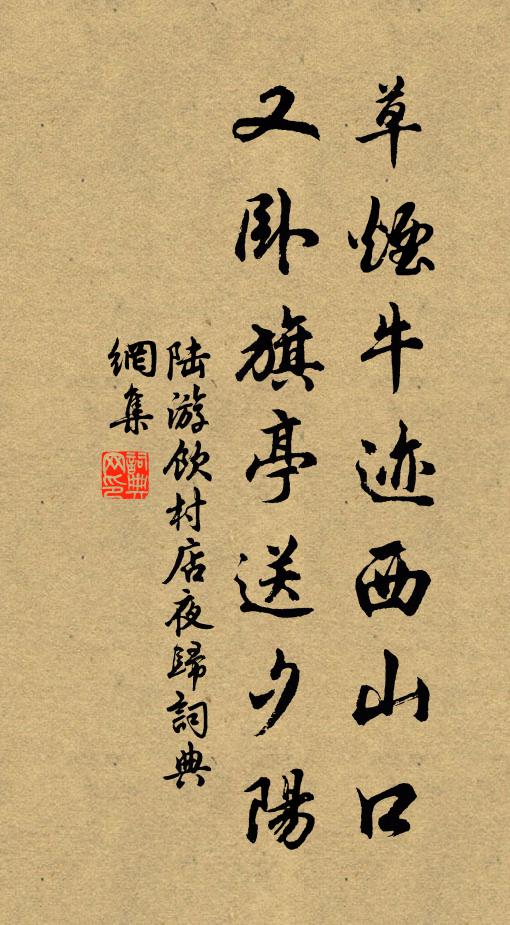 草煙牛迹西山口
又卧旗亭送夕陽
陆游飲村店夜歸詞典
網集
詞典网印